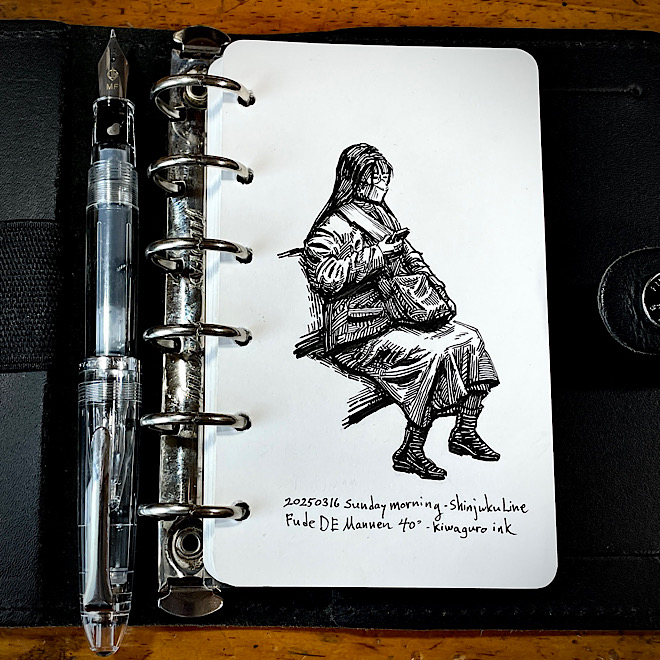 MF
20250316 Sunday morning - Shinjuku Line
Fude DE Mannen 40° - Kiwaguro ink